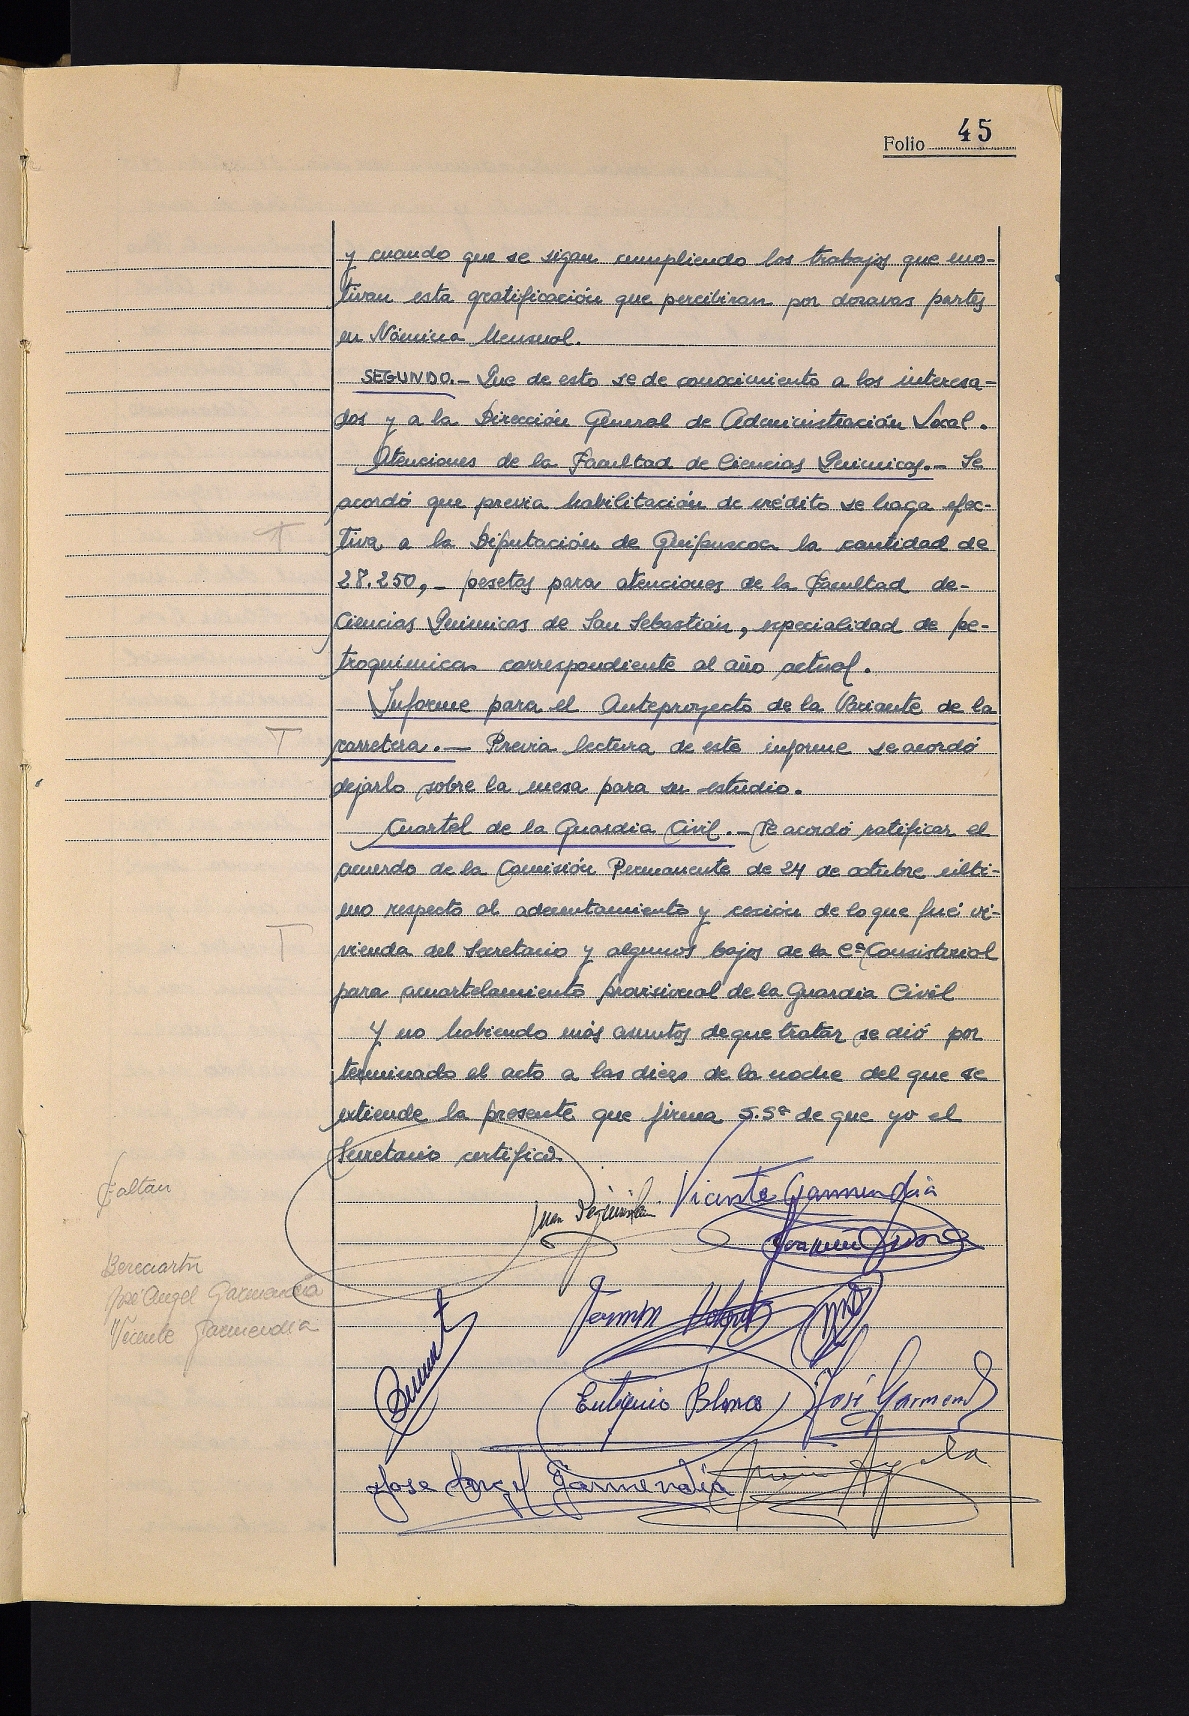 Folio 45
y cuando que se sigan cumpliendo los trabajos que mo-
tivan esta gratificación que percibiran por dozavas partes
en Nómina Mensual.
SEGUNDO.- Que de esto se de conocimiento a los interesa-
dos y a la Dirección General de Administración Local.
Atenciones de la Facultad de Ciencias Quimicas.- Se
acordó que previa habilitación de crédito se haga efec-
tiva a la Diputación de Guipuscoa la cantidad de
28.250,- pesetas para atenciones de la Facultad de-
Ciencias Quimicas de San Sebastián, especialidad de pe-
troquímicas correspondiente al año actual.
Informe para el Anteproyecto de la Variante de la
carretera.- Previa lectura de este informe se acordó
dejarlo sobre la mesa para su estudio.
Cuartel de la Guardia Civil.- Se acordó ratificar el
acuerdo de la Comisión Permanente de 24 de octubre últi-
mo respecto al adecentamiento y cesión de lo que fué vi-
vienda del Secretario y algunos bajos de la Cª Consistorial
para acuartelamiento provisional de la Guardia Civil
Y no habiendo más asuntos de que tratar se dió por
terminado el acto a las diez de la noche del que se
extiende la presente que firma S.Sª de que yo el
Secretario certifico.
Faltan
Vicente Garmendia
Juan
Joaquin
José Angel Garmendia
Vicente Garmendia
Fermin
Eutiquio Blanco
José Garmend
Jose Angel Garmendia
T
T
T